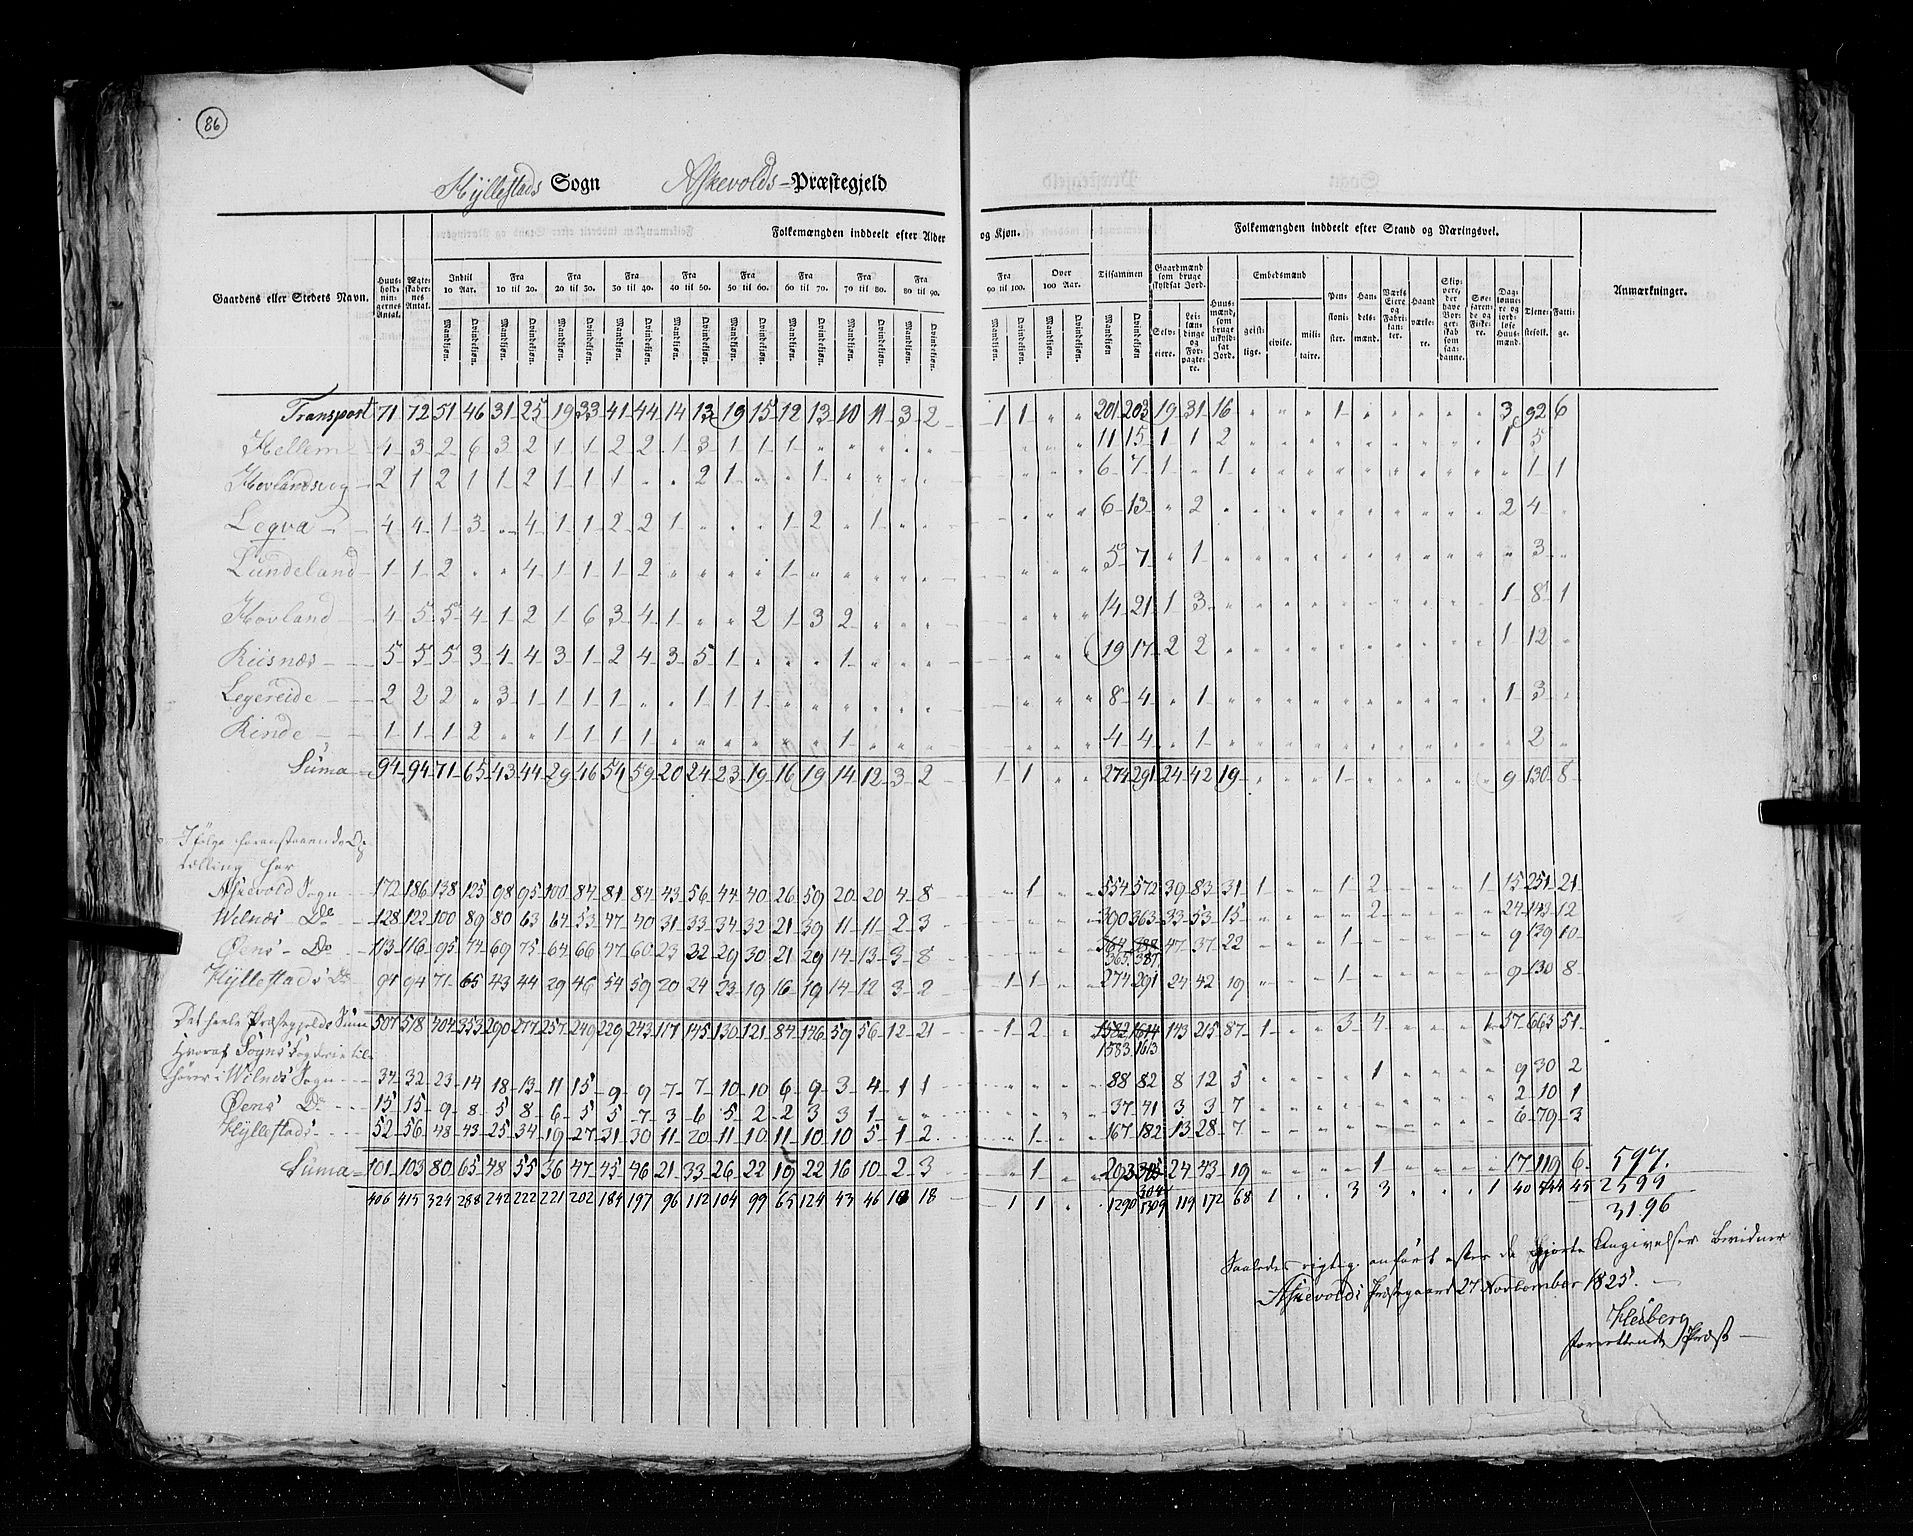 86
Hyllestads Sogn Askevolds Præstegjeld
Folkemængden inddeelt efter Alder og Kjøn. Folkemængden inddeelt efter Stand og Næringsvei.
Gaardens eller Stedets Navn. Huusholdningernes Antal. Ægteskabernes Antal. Indtil 10 Aar. Fra 10 til 20. Fra 20 til 30. Fra 30 til 40. Fra 40 til 50. Fra 50 til 60. Fra 60 til 70. Fra 70 til 80. Fra 80 til 90. Fra 90 til 100. Over 100 Aar. Tilsammen Gaardmænd som bruge skyldsat Jord. Huusmænd, som bruge uskyldsat Jord. Embedsmænd Pensionister. Handelsmænd. Værks Eiere og Fabrikanter. Haandværkere. Skippere, der have Borgerskab som saadanne. Søefarende og Fiskere. Daglønnere og jordløse Huusmænd. Tjenestefolk. Fattige. Anmærkninger.
Mandkjøn. Qvindekjøn. Selveiere. Leilændinge og Forpagtere. geistlige. civile. militaire.
Transport 71 72 51 46 31 25 19 33 41 44 14 13 19 15 12 13 10 11 3 2 1 1 " " 201 203 19 31 16 " " " 1 " " " " " 3 92 6
Hellem 4 3 2 6 3 2 1 1 2 2 1 3 1 1 1 " " " " " 11 15 1 1 2 1 5 "
Hovlandsvog 2 1 2 1 1 2 1 1 1 " " 2 1 " " 1 " " " " 6 7 1 " 1 " 1 1
Leqva 4 4 1 3 " 4 1 1 2 2 1 " " " 1 2 " 1 " " 6 13 " 2 " 2 4 "
Lundeland 1 1 2 " " 4 1 1 1 2 " " " " 1 " " " " " 5 7 " 1 " " 3 "
Hovland 4 5 5 4 1 2 1 6 3 4 1 " " 2 1 3 2 " " " 14 21 1 3 " 1 8 1
Riisnæs 5 5 5 3 4 4 3 1 2 4 3 5 1 " " " 1 " " " 19 17 2 2 " 1 12 "
Legereide 2 2 2 " 3 1 1 1 1 " " 1 1 1 " " " " " " 8 4 " 1 " 1 3 "
Rinde 1 1 1 2 " " 1 1 1 1 " " " " " " 1 " " " 4 4 " 1 " " 2 "
Suma 94 94 71 65 43 44 29 46 54 59 20 24 23 19 16 19 14 12 3 2 1 1 " " 274 291 24 42 19 " " " 1 " " " " " 9 130 8
Ifølge foranstaaende Op
tælling har
Askevold Sogn 172 186 138 125 98 95 100 84 81 84 43 56 44 40 26 59 20 20 4 8 " 1 " 554 572 39 83 31 1 " " 1 2 " " " 1 15 251 21
Wilnæs Do 128 122 100 89 80 63 64 53 47 40 31 33 34 32 21 39 11 11 2 3 390 363 33 53 15 2 24 143 12
Øens Do 113 116 95 74 69 75 64 66 47 60 23 32 29 30 21 29 14 13 3 8 364 388 47 37 22 1 9 139 10
365 387
Hyllestads Do 94 94 71 65 43 44 29 46 54 59 20 24 23 19 16 19 14 12 3 2 1 1 274 291 24 42 19 1 9 130 8
Det heele Præstegjelds Sum 507 518 404 353 290 277 257 249 229 243 117 145 130 121 84 146 59 56 12 21 1 2 " 1582 1614 143 215 87 1 " " 3 4 " " " 1 57 663 51
1583 1613
Hvoraf Sogns Fogderie til
hører i Wilnes Sogn 34 32 23 14 18 13 11 15 9 9 7 7 10 10 6 9 3 4 1 1 88 82 8 12 5 1 9 30 2
Øens Do 15 15 9 8 5 8 6 5 5 7 3 6 5 2 2 3 3 1 " " 37 41 3 3 7 2 10 1
Hyllestads 52 56 48 43 25 34 19 27 31 30 11 20 11 10 11 10 10 5 1 2 1 167 182 13 28 7 6 79 3
Suma 101 103 80 65 48 55 36 47 45 46 21 33 26 22 19 22 16 10 2 3 1 293 305 24 43 19 1 17 119 6 597.
304
406 415 324 288 242 222 221 202 184 197 96 112 104 99 65 124 43 46 10 18 1 1 " 1290 1309 119 172 68 1 " " 3 3 " " " 1 40 544 45 2599
3196
Saaledes rigtig anført efter de gjorte Angivelser bevidner
Askevolds Præstegaard 27 November 1825.
Heiberg
Præst